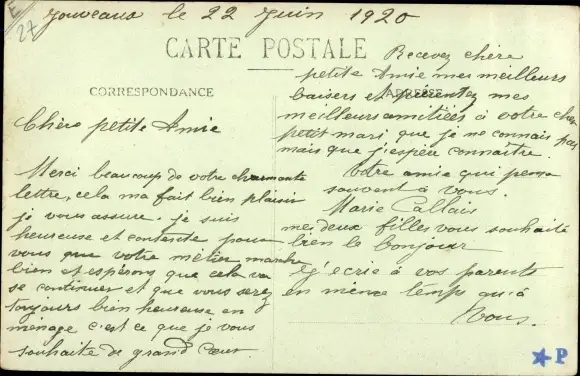 Jouveaux le 22 Juin 1920
E
27
CARTE POSTALE
CORRESPONDANCE
ADRESSE
Chère petite Amie
Merci beaucoup de votre charmante
lettre, cela ma fait bien plaisir
je vous assure. je suis
heureuse et contente pour
vous que votre métier marche
bien et espérons que cela va
se continuer et que vous serez
toujours bien heureuse en
ménage c'est ce que je vous
souhaite de grand cœur.
Recevez chère
petite Amie mes meilleurs
baisers et présentez mes
meilleurs amitiées à votre cher
petit mari que je ne connais pas
mais que j'espère connaître.
Votre amie qui pense
souvent à vous.
Marie Callais
mes deux filles vous souhaite
bien le bonjour
et j'écrie à vos parents
en même temps qu'à
Vous.
P